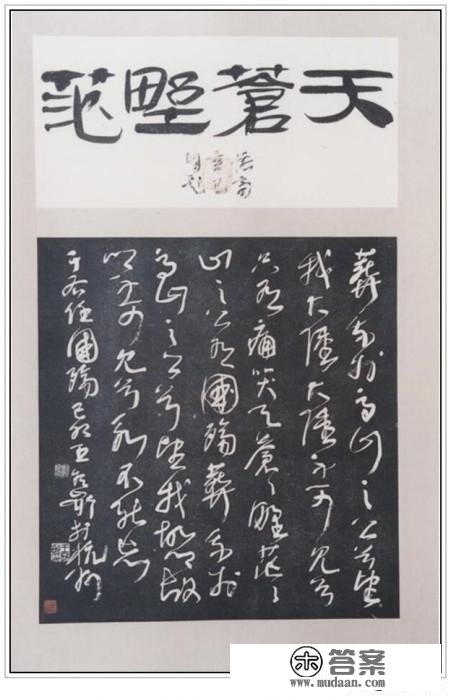 天蒼野茫
葬我於高山之上兮望
我大陸大陸不可見兮
只有痛哭天蒼々野茫々
山之上有國殤葬我於
高山之上兮望我故鄉故
鄉不可見兮永不能忘
于右任國殤 己卯王冬齡於杭州
答案
www.mudaan.com